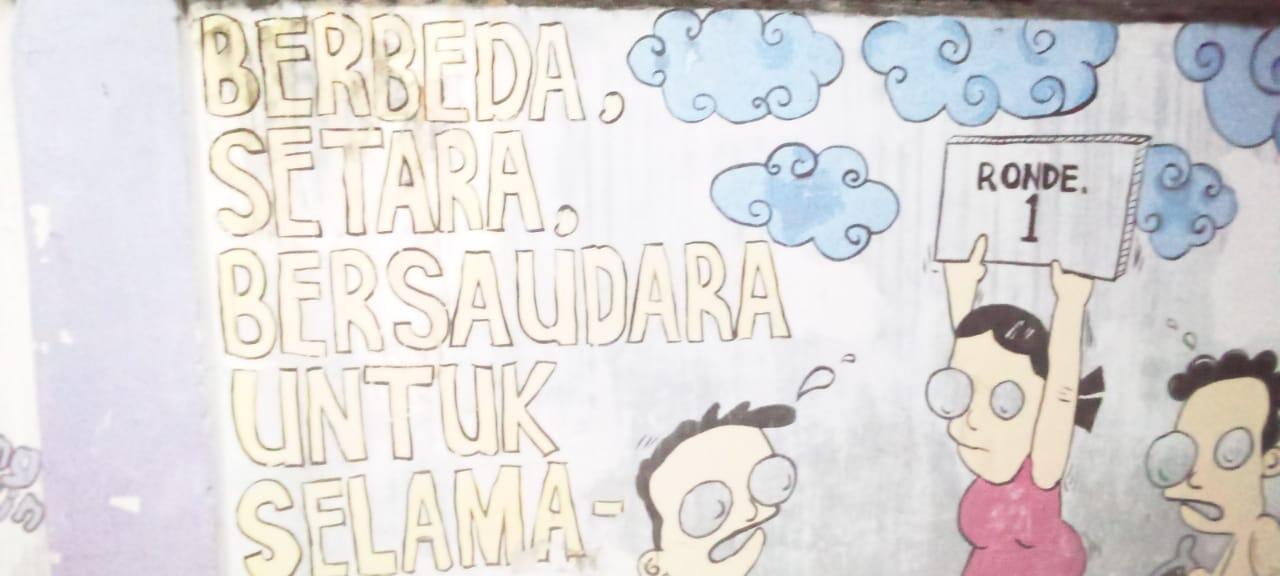 BERBEDA,
SETARA,
BERSAUDARA
UNTUK
SELAMA-
RONDE.
1